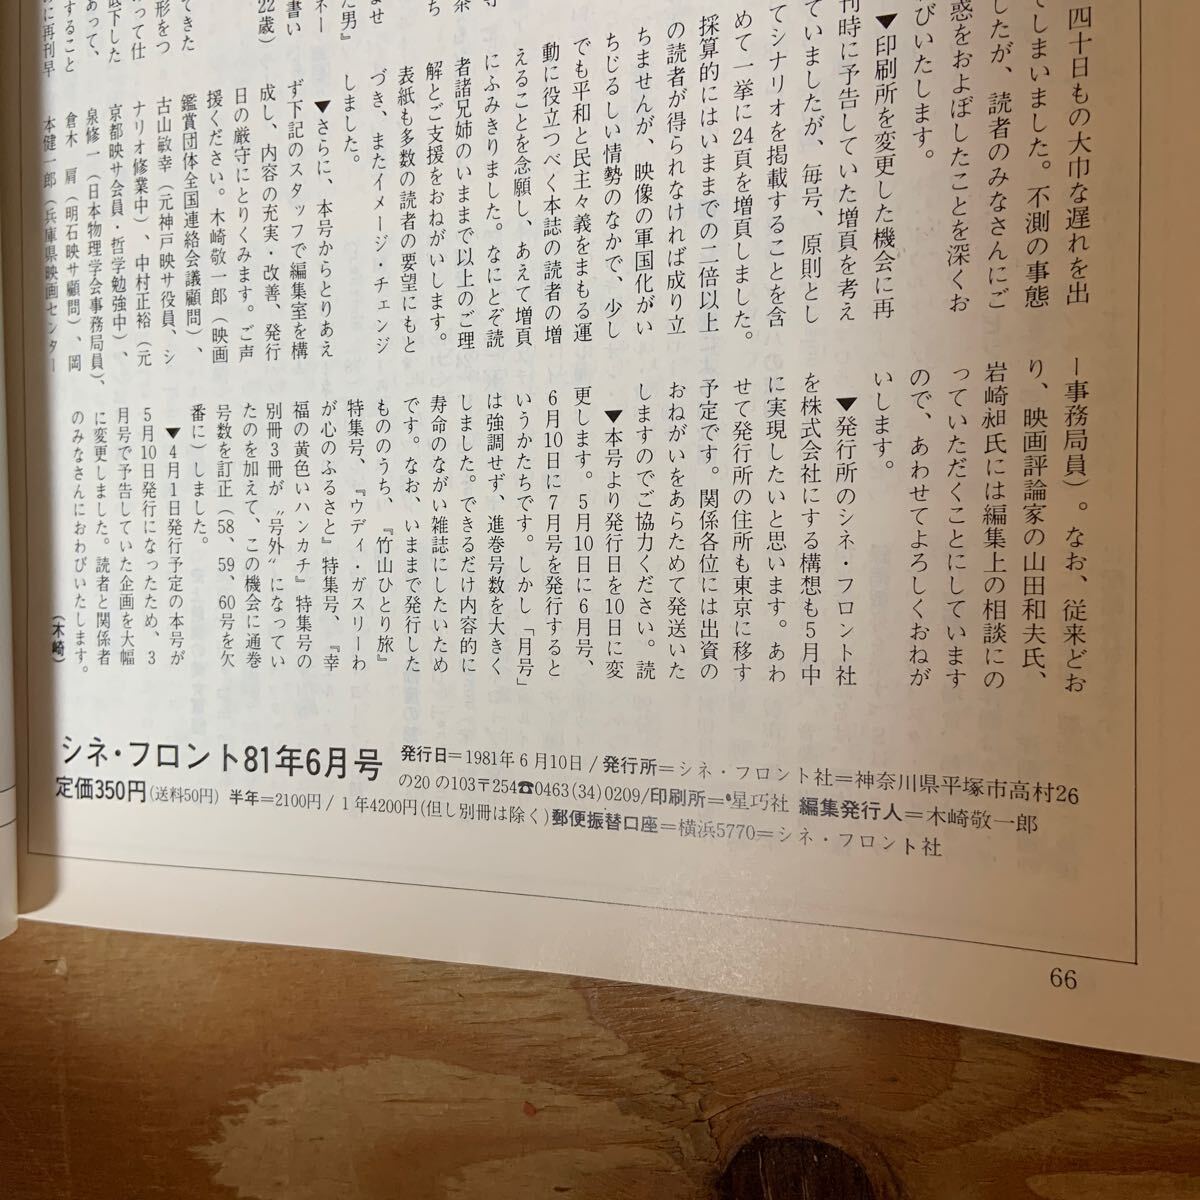 四十日もの大巾な遅れを出
てしまいました。不測の事態
したが、読者のみなさんにご
惑をおよぼしたことを深くお
びいたします。
▼印刷所を変更した機会に再
刊時に予告していた増頁を考え
ていましたが、毎号、原則とし
てシナリオを掲載することを含
めて一挙に24頁を増頁しました。
採算的にはいままでの二倍以上
の読者が得られなければ成り立
ちませんが、映像の軍国化がい
ちじるしい情勢のなかで、少し
でも平和と民主々義をまもる運
動に役立つべく本誌の読者の増
えることを念願し、あえて増頁
にふみきりました。なにとぞ読
者諸兄姉のいままで以上のご理
解とご支援をおねがいします。
表紙も多数の読者の要望にもと
づき、またイメージ・チェンジ
しました。
▼さらに、本号からとりあえ
ず下記のスタッフで編集室を構
成し、内容の充実・改善、発行
日の厳守にとりくみます。ご声
援ください。木崎敬一郎（映画
鑑賞団体全国連絡会議顧問）、
古山敏幸（元神戸映サ役員、シ
ナリオ修業中）、中村正裕（元
京都映サ会員・哲学勉強中）、
泉修一（日本物理学会事務局員）、
倉木　肩（明石映サ顧問）、岡
本健一郎（兵庫県映画センター
ー事務局員）。なお、従来どお
り、映画評論家の山田和夫氏、
岩崎昶氏には編集上の相談にの
っていただくことにしています
ので、あわせてよろしくおねが
いします。
▼発行所のシネ・フロント社
を株式会社にする構想も5月中
に実現したいと思います。あわ
せて発行所の住所も東京に移す
予定です。関係各位には出資の
おねがいをあらためて発送いた
しますのでご協力ください。読
▼本号より発行日を10日に変
更します。5月10日に6月号、
6月10日に7月号を発行すると
いうかたちです。しかし「月号」
は強調せず、進巻号数を大きく
しました。できるだけ内容的に
寿命のながい雑誌にしたいため
です。なお、いままで発行した
もののうち、『竹山ひとり旅』
特集号、『ウディ・ガスリーわ
が心のふるさと』特集号、『幸
福の黄色いハンカチ』特集号の
別冊3冊が〝号外〟になってい
たのを加えて、この機会に通巻
号数を訂正（58、59、60号を欠
番に）しました。
▼4月1日発行予定の本号が
5月10日発行になったため、3
月号で予告していた企画を大幅
に変更しました。読者と関係者
のみなさんにおわびいたします。
（木崎）
シネ・フロント81年6月号 発行日＝1981年6月10日/発行所＝シネ・フロント社＝神奈川県平塚市高村26
定価350円(送料50円) 半年＝2100円/1年4200円(但し別冊は除く)
の20の103〒254☎0463(34)0209/印刷所＝星巧社 編集発行人＝木崎敬一郎
郵便振替口座＝横浜5770＝シネ・フロント社
66